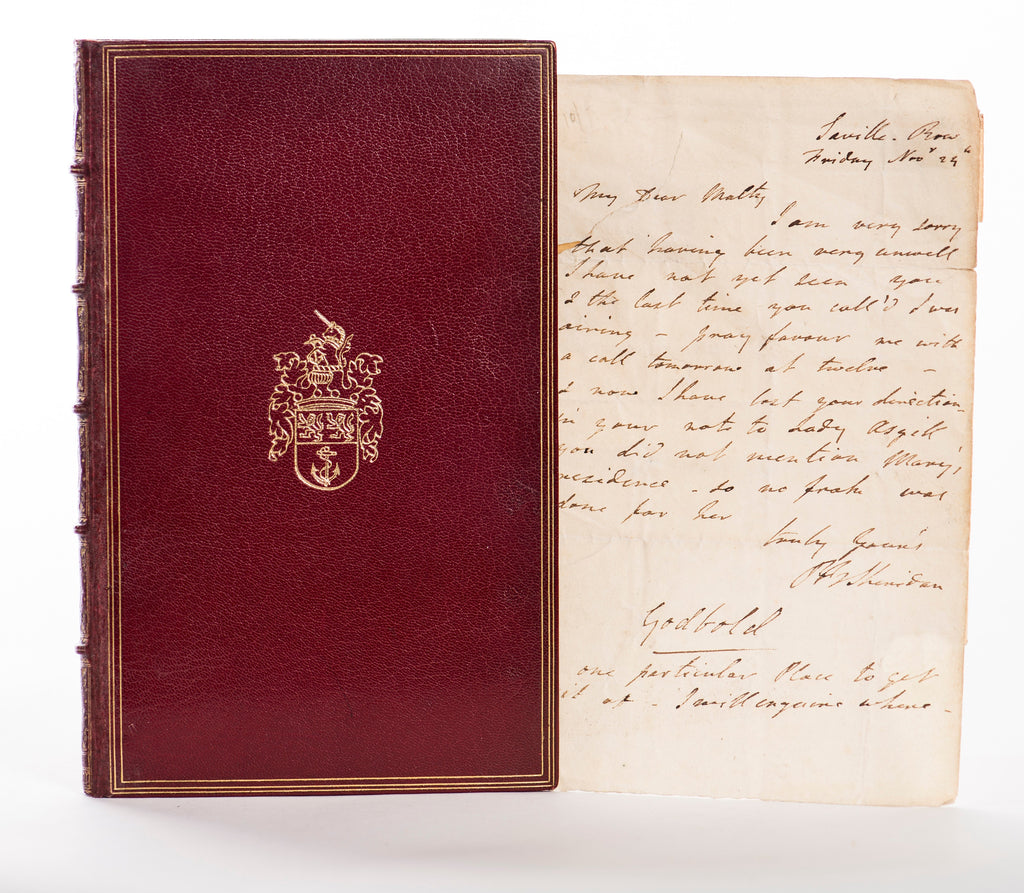 Saville Row
Friday Novr 24th
My Dear Malty
I am very sorry
that having been very unwell
I have not yet seen you
& the last time you call'd I was
airing - pray favour me with
a call tomorrow at twelve -
now I have lost your direction
in your not to Lady Asgill
you did not mention Mary's
residence - so no frank was
done for her
truly Your's
RBSheridan
Godbold
one particular Place to get
it at - I will enquire where -